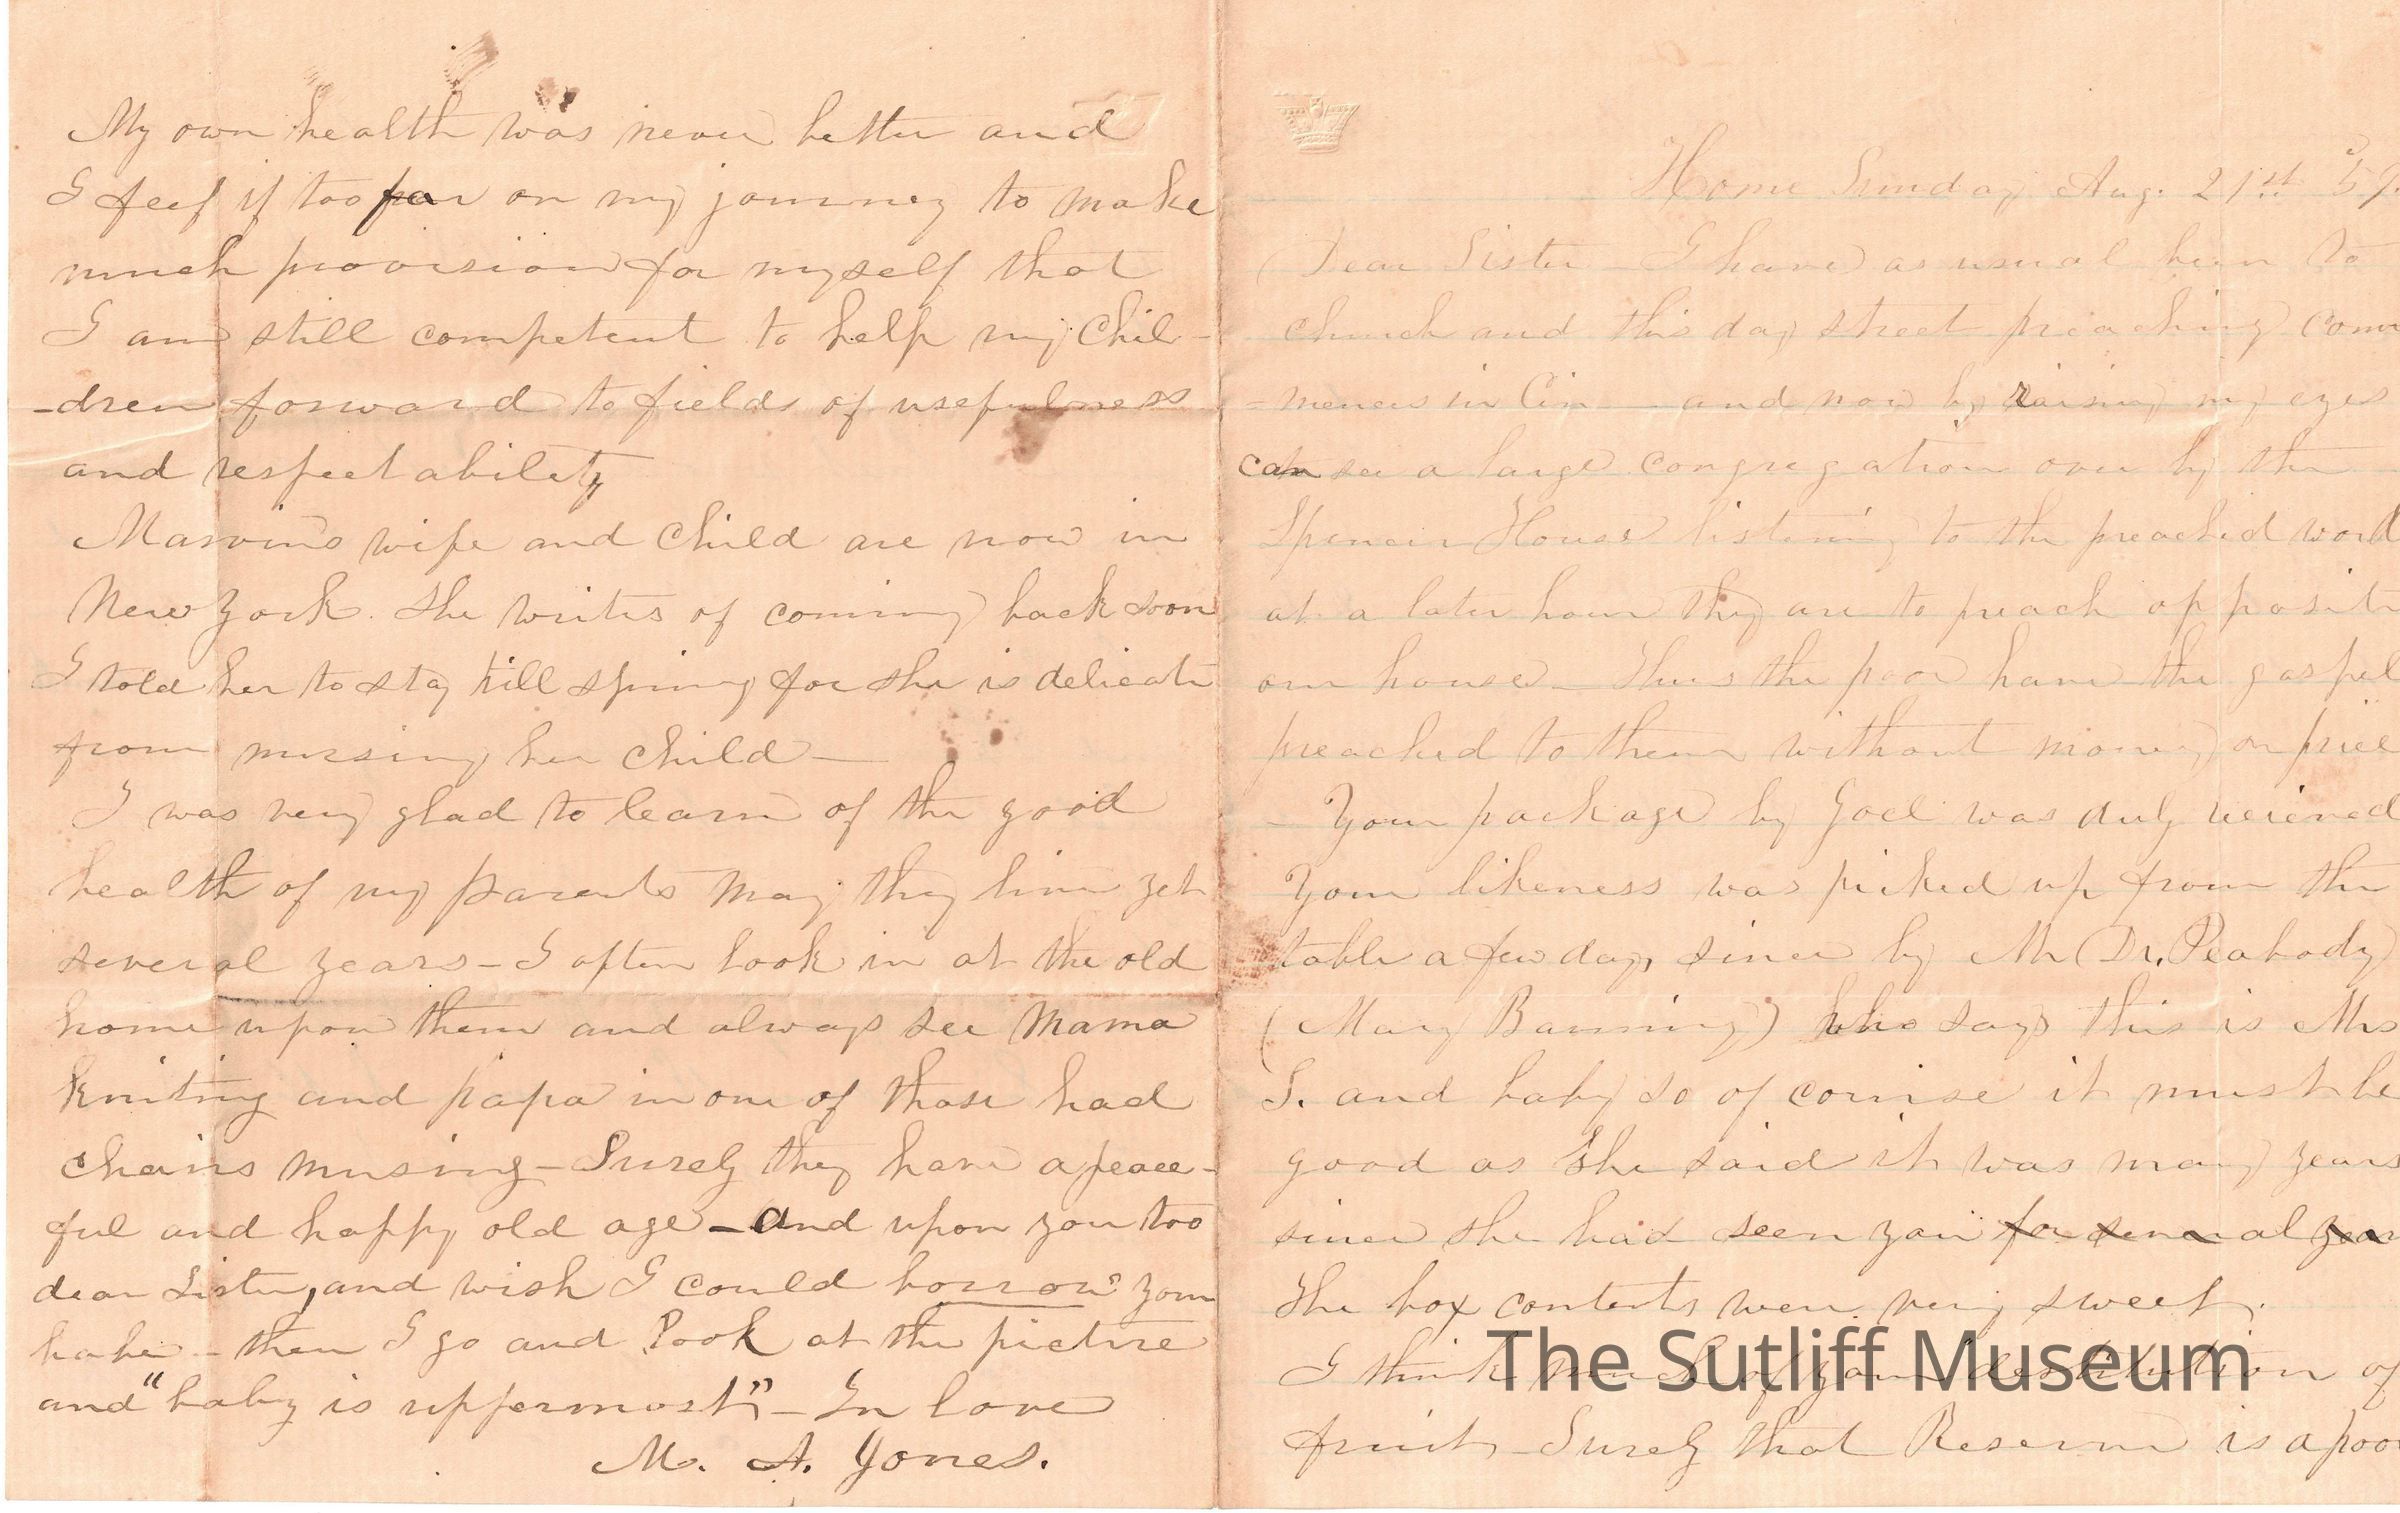 My own health was never better and
I feel if too far on my journey to make
much provision for myself that
I am still competent to help my Chil-
-dren forward to fields of usefulness
and respectability
Marvins wife and Child are now in
New York. She writes of coming back soon
I told her to stay till spring for she is delicate
from nursing her Child —
I was very glad to learn of the good
health of my parents May they live yet
several years - I often look in at the old
home upon them and always see Mama
kniting and papa in one of those had
chairs musing - Surely they have a peace-
ful and happy old age - And upon you too
dear Sister, and wish I could borrow your
babe - then I go and look at the picture
and "baby is uppermost" - In love
M. A. Jones.
Home Sunday Aug. 21st 59.
Dear Sister - I have as usual been to
church and this day street preaching com
- mences in Cin - and now by raising my eyes
can see a large congregation over by the
Spencer House listening to the preached word
at a later hour they are to preach opposite
our house - Thus the poor have the gospel
preached to them without money or price
- Your package by Joel was duly recieved
Your likeness was picked up from the
table a few days since by Mr (Dr. Peabody)
(Mary Banning) who says this is Mrs
S. and baby so of course it must be
good as she said it was many years
since she had seen you for several years
The box contents were very sweet.
I think much of your destitution of
fruit - Surely that Reserve is a poor
The Sutliff Museum